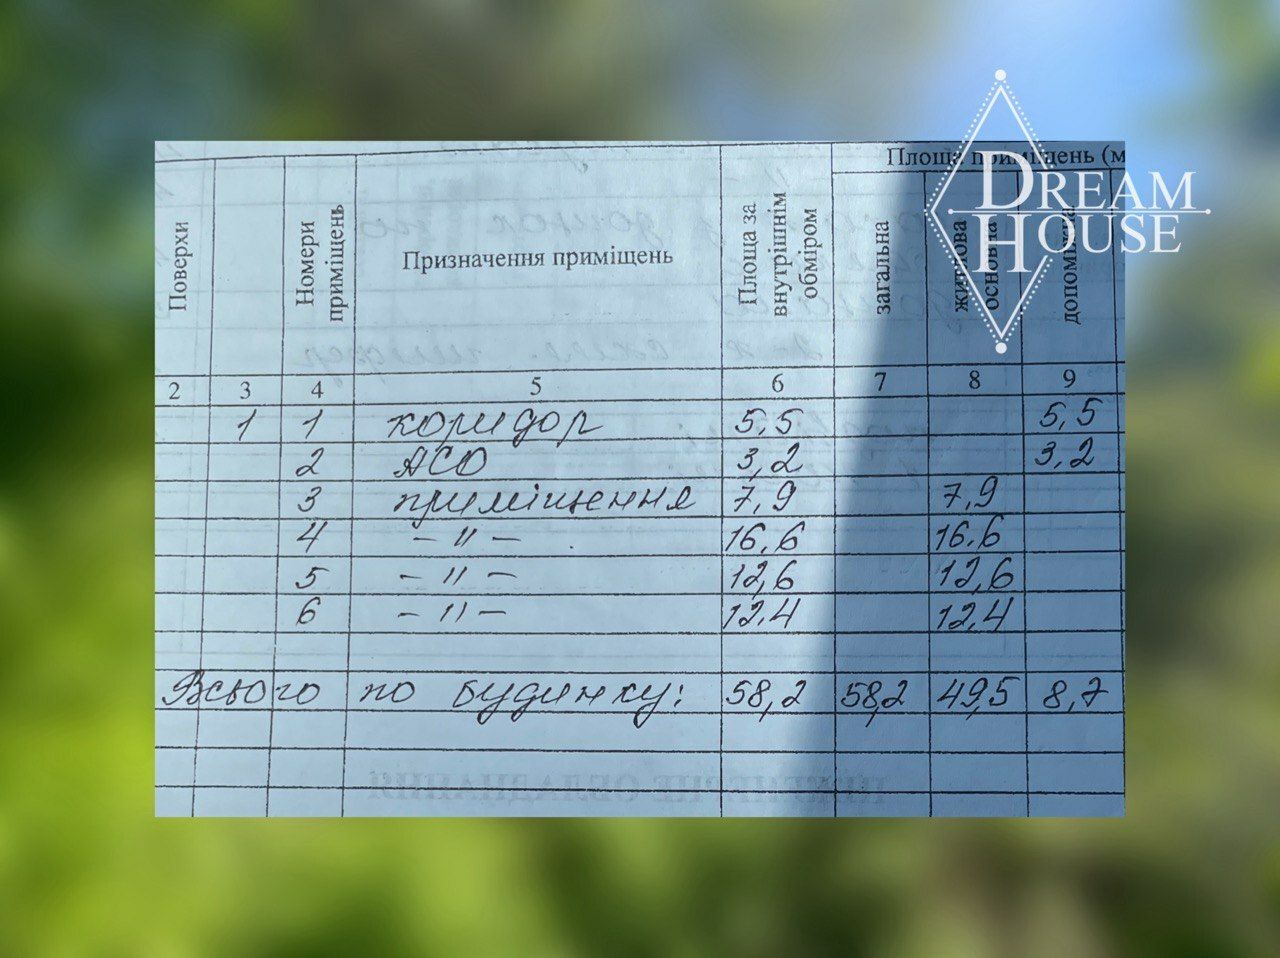 DREAM
HOUSE
Площа приміщень (м
Поверхи
Номери приміщень
Призначення приміщень
Площа за внутрішнім обміром
загальна
житлова основна
допоміжна
2 3 4 5 6 7 8 9
1 1 коридор 5,5 5,5
2 АСО 3,2 3,2
3 приміщення 7,9 7,9
4 – " – 16,6 16,6
5 – " – 12,6 12,6
6 – " – 12,4 12,4
Всього по будинку: 58,2 58,2 49,5 8,7